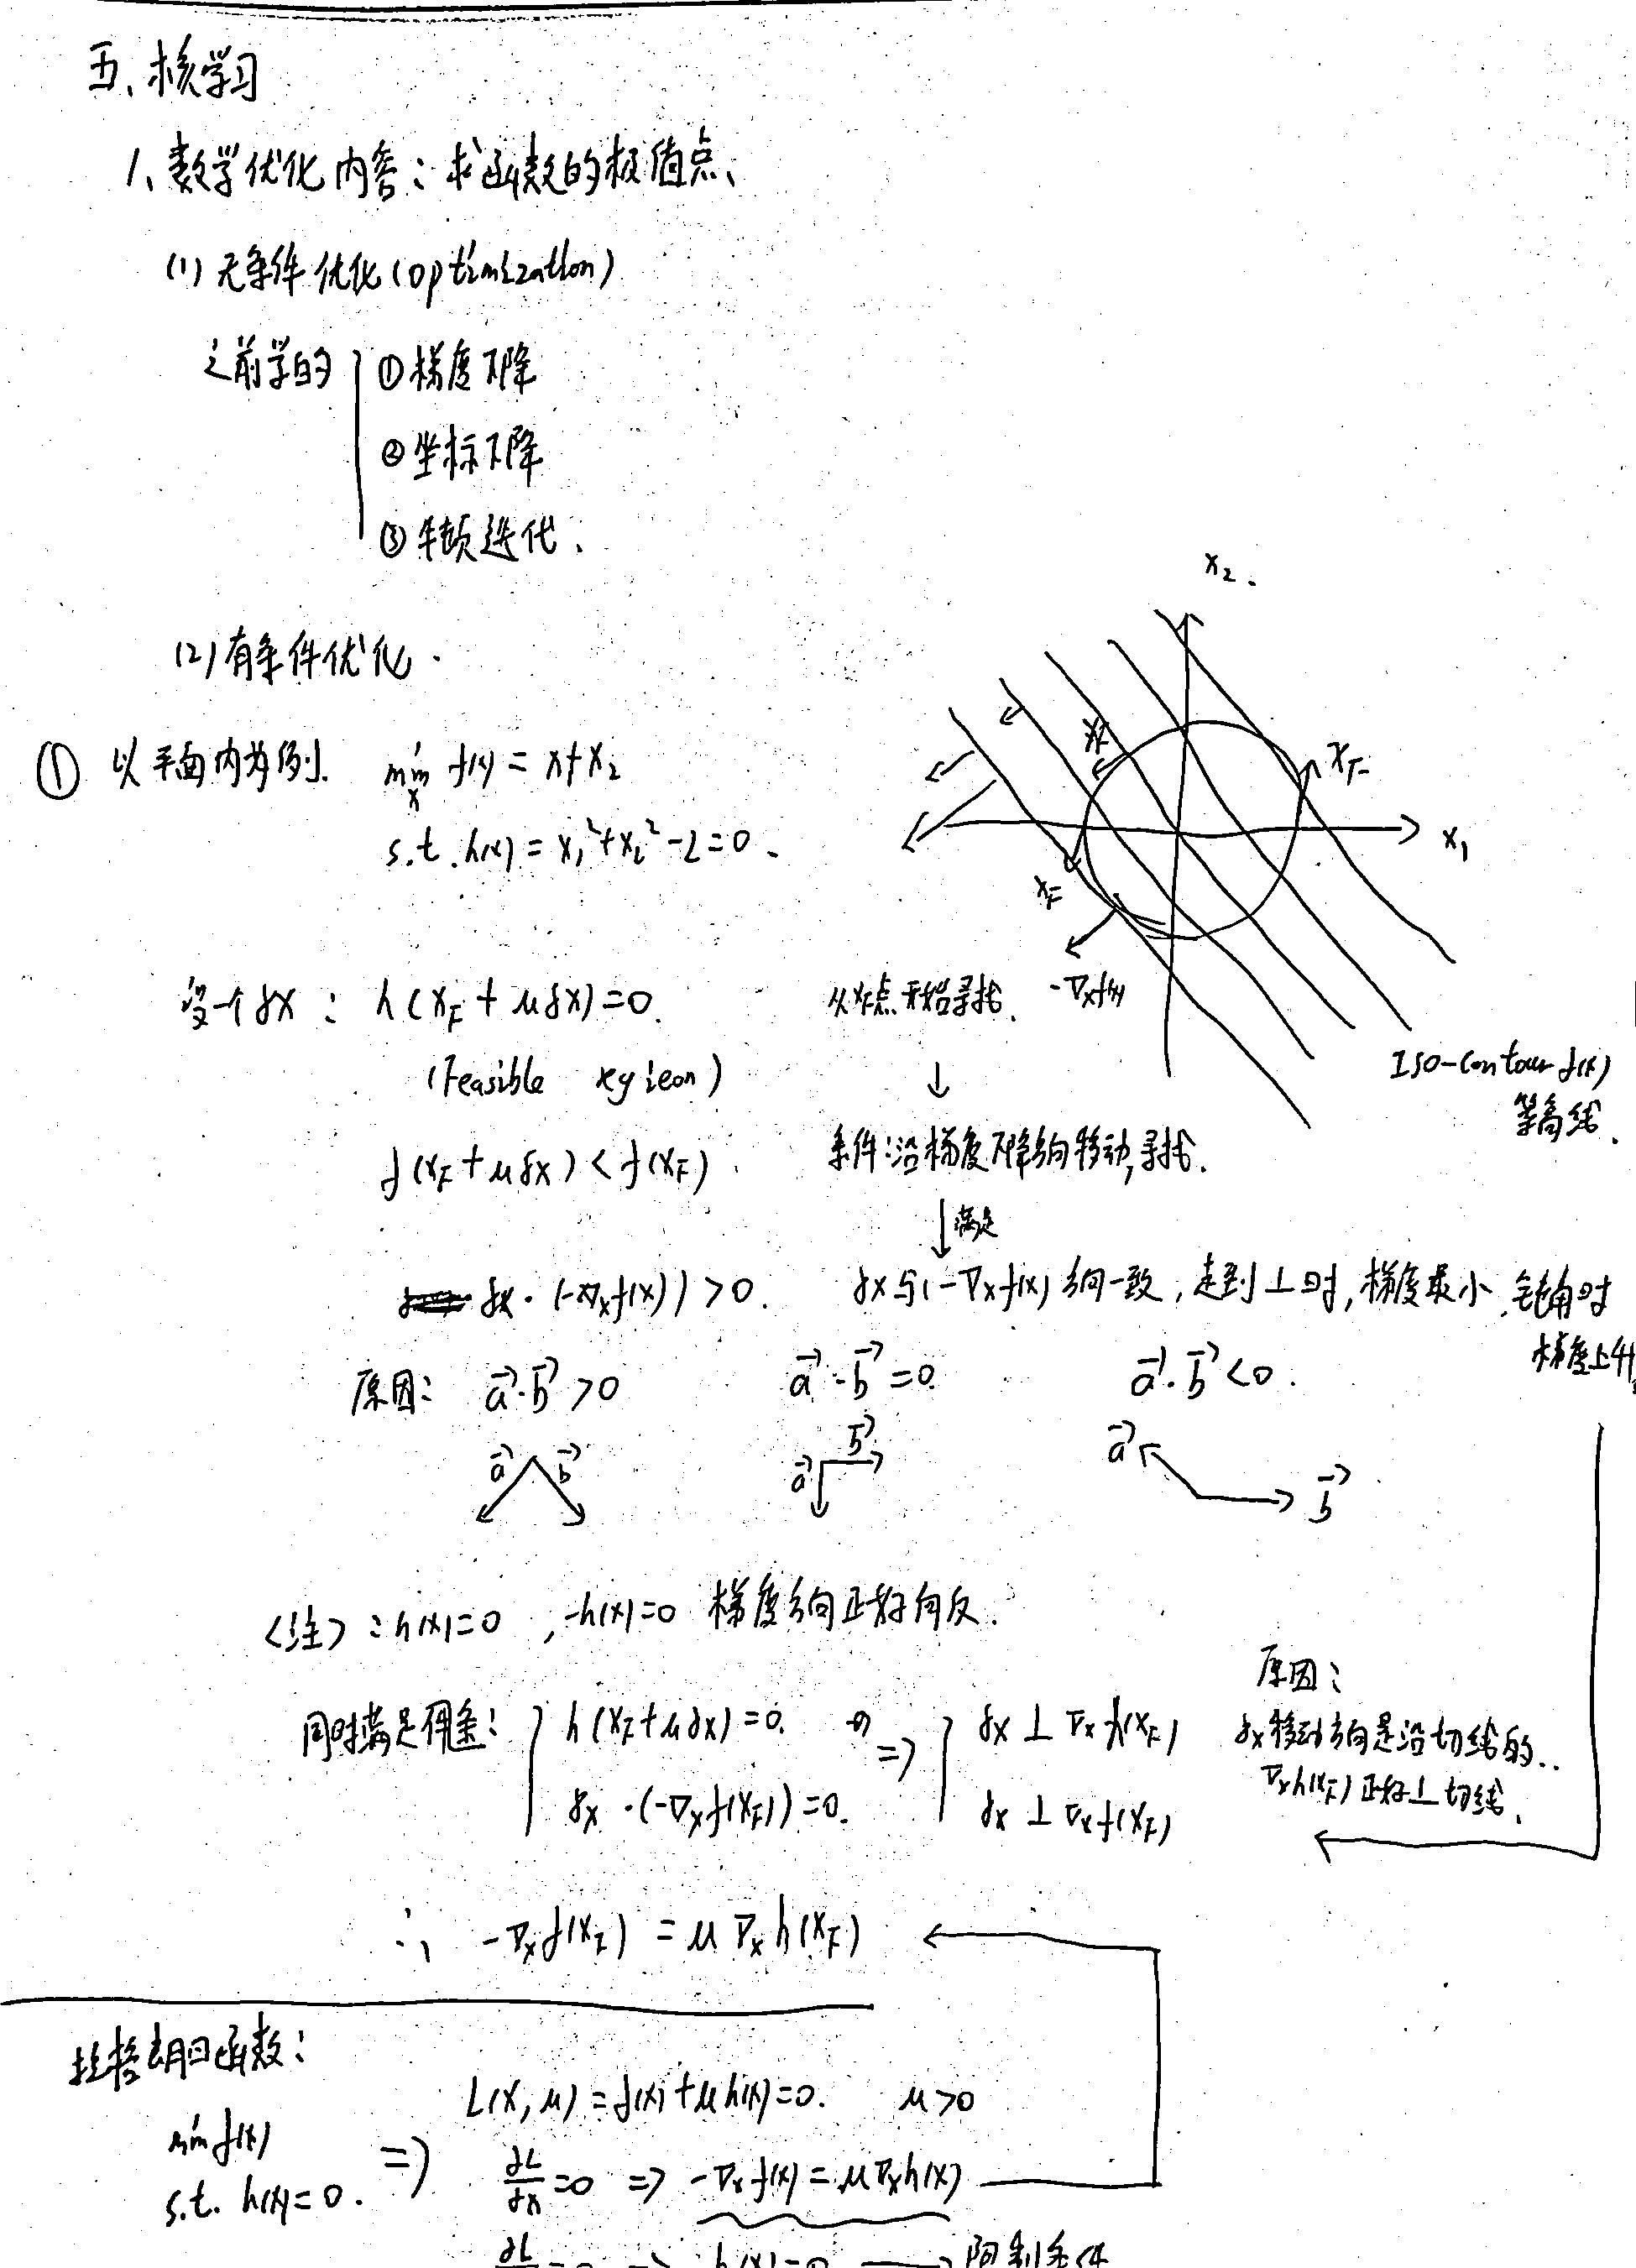 五、核学习
1、数学优化内容：求函数的极值点、
(1) 无条件优化(optimization)
之前学的 ①梯度下降
②坐标下降
③牛顿迭代.
(2)有条件优化.
x₂.
① 以平面内为例. min f(x) = x₁+x₂
x
s.t. h(x) = x₁²+x₂²-2=0.
x_F
x_F
x₁
x_F
-∇ₓf(x)
Iso-contour f(x)
等高线.
没一个δx : h(x_F + μδx)=0.
从x_F点开始寻找.
(Feasible
f(x_F+μδx) < f(x_F).
条件:沿梯度下降方向移动,寻找.
↓满足
δx·(-∇ₓf(x))>0.
δx与(-∇ₓf(x))方向一致,走到⊥时,梯度最小.钝角时
梯度上升
原因: a⃗·b⃗>0 a⃗·b⃗=0. a⃗·b⃗<0.
a⃗ b⃗ a⃗ b⃗ a⃗ b⃗
<注>:h(x)=0 ,-h(x)=0 梯度方向正好相反.
同时满足两条: h(x_F+μδx)=0. => δx⊥∇ₓh(x_F)
δx·(-∇ₓf(x_F))=0. δx⊥∇ₓf(x_F)
原因:
δx移动方向是沿切线的..
∇ₓh(x_F)正好⊥切线.
∴, -∇ₓf(x_F) = μ∇ₓh(x_F)
拉格朗日函数:
L(x,μ)=f(x)+μh(x)=0. μ>0
min f(x)
s.t. h(x)=0. => ∂L/∂x=0 => -∇ₓf(x)=μ∇ₓh(x)
∂L =0 => h(x)=0 → 限制条件